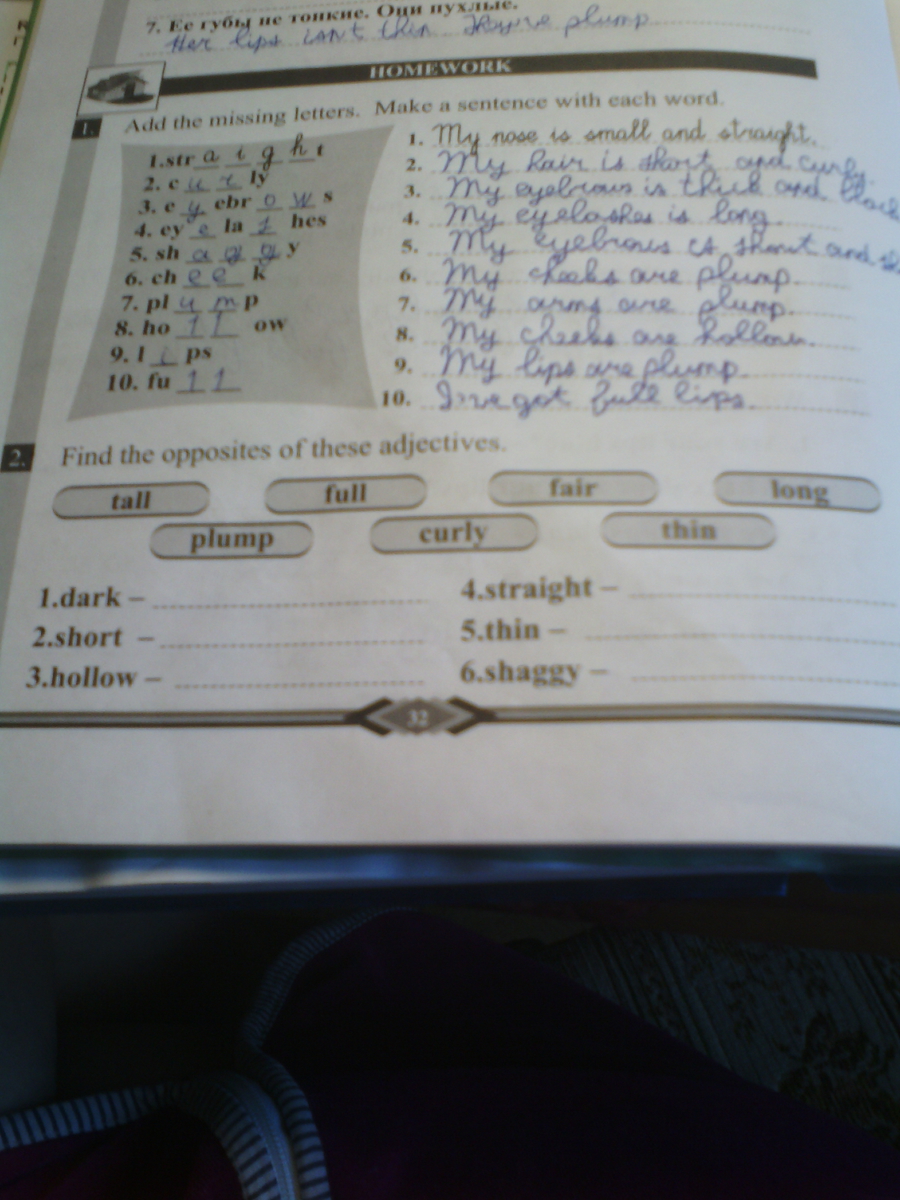 7. Ее губы не тонкие. Они пухлые.
Her lips isn't thin. They're plump
HOMEWORK
1. Add the missing letters. Make a sentence with each word.
1.str a i g h t
2. c u r ly
3. e y ebr o w s
4. ey e la s hes
5. sh a g g y
6. ch e e k
7. pl u m p
8. ho l l ow
9. l i ps
10. fu l l
1. My nose is small and straight.
2. My hair is short and curly.
3. My eyebrows is thick and black
4. My eyelashes is long.
5. My eyebrows is short and
6. My cheeks are plump.
7. My arms are plump.
8. My cheeks are hollow.
9. My lips are plump.
10. I've got full lips.
2. Find the opposites of these adjectives.
tall full fair long
plump curly thin
1.dark –
2.short –
3.hollow –
4.straight –
5.thin –
6.shaggy –
32